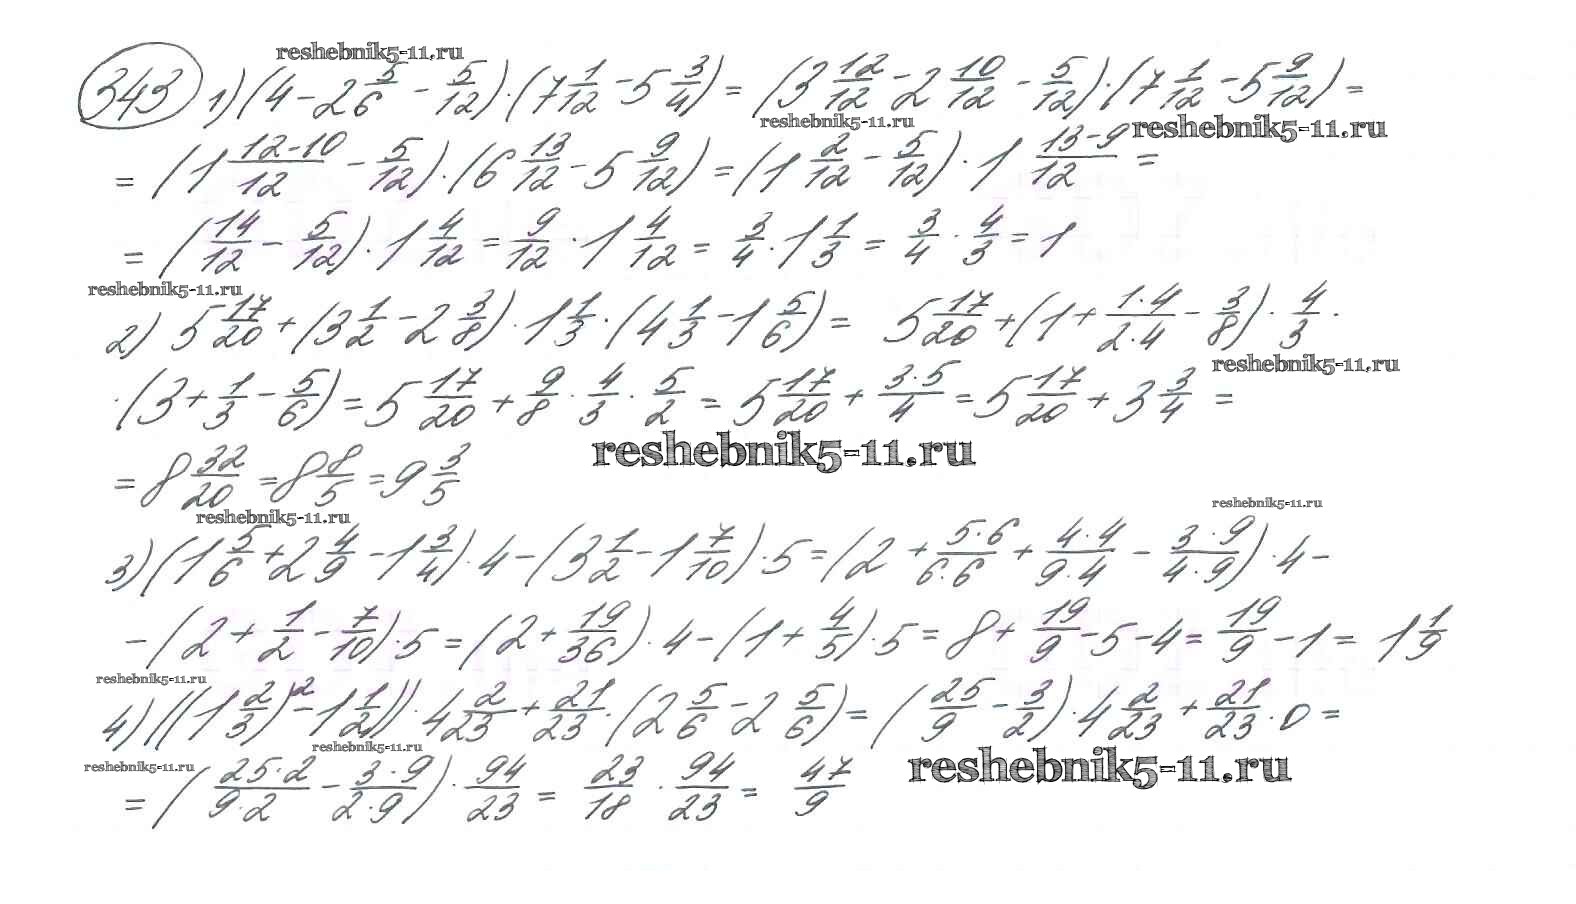 reshebnik5-11.ru
343 1) (4 - 2 5/6 - 5/12) · (7 1/12 - 5 3/4) = (3 12/12 - 2 10/12 - 5/12) · (7 1/12 - 5 9/12) =
reshebnik5-11.ru reshebnik5-11.ru
= (1 (12-10)/12 - 5/12) · (6 13/12 - 5 9/12) = (1 2/12 - 5/12) · 1 (13-9)/12 =
= (14/12 - 5/12) · 1 4/12 = 9/12 · 1 4/12 = 3/4 · 1 1/3 = 3/4 · 4/3 = 1
reshebnik5-11.ru
2) 5 17/20 + (3 1/2 - 2 3/8) · 1 1/3 · (4 1/3 - 1 5/6) = 5 17/20 + (1 + (1·4)/(2·4) - 3/8) · 4/3 ·
reshebnik5-11.ru
· (3 + 1/3 - 5/6) = 5 17/20 + 9/8 · 4/3 · 5/2 = 5 17/20 + (3·5)/4 = 5 17/20 + 3 3/4 =
reshebnik5-11.ru
= 8 32/20 = 8 8/5 = 9 3/5
reshebnik5-11.ru reshebnik5-11.ru
3) (1 5/6 + 2 4/9 - 1 3/4) · 4 - (3 1/2 - 1 7/10) · 5 = (2 + (5·6)/(6·6) + (4·4)/(9·4) - (3·9)/(4·9)) · 4 -
- (2 + 1/2 - 7/10) · 5 = (2 + 19/36) · 4 - (1 + 4/5) · 5 = 8 + 19/9 - 5 - 4 = 19/9 - 1 = 1 1/9
reshebnik5-11.ru
4) ((1 2/3)² - 1 1/2)) · 4 2/23 + 21/23 · (2 5/6 - 2 5/6) = (25/9 - 3/2) · 4 2/23 + 21/23 · 0 =
reshebnik5-11.ru
reshebnik5-11.ru reshebnik5-11.ru
= ((25·2)/(9·2) - (3·9)/(2·9)) · 94/23 = 23/18 · 94/23 = 47/9